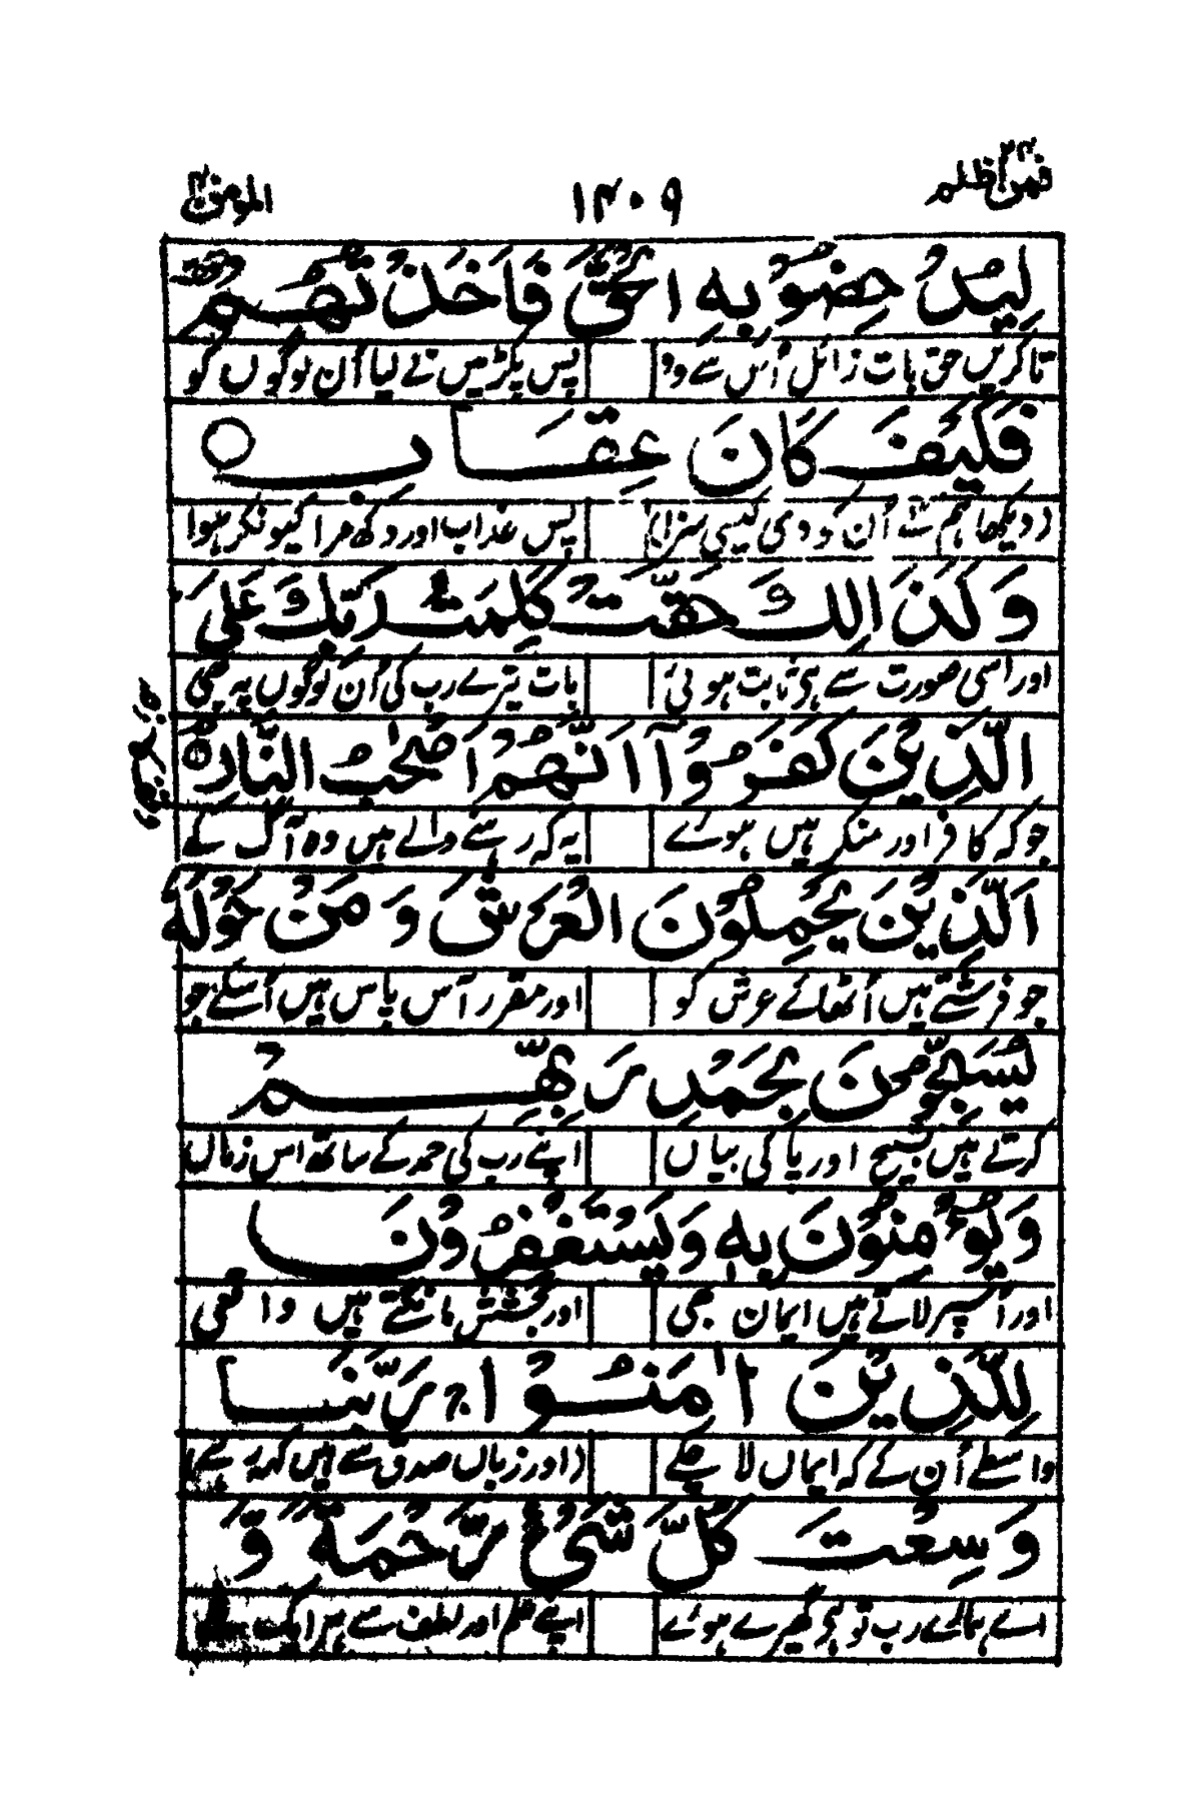 فمن اظلم ۲۴ ۱۴۰۹ المومن ۴۰
لِيُدْحِضُوْا بِهِ الْحَقَّ فَاَخَذْتُهُمْ
تا کریں حق بات زائل اُس سے وہ پس پکڑ میں نے لیا اُن لوگوں کو
فَكَيْفَ كَانَ عِقَابِ ○
(دیکھا ہم نے اُن کو دی کیسی سزا) پس عذاب اور دکھ مرا کیونکر ہوا
وَكَذٰلِكَ حَقَّتْ كَلِمَتُ رَبِّكَ عَلَى
اور اسی صورت سے ہی ثابت ہوئی بات تیرے رب کی اُن لوگوں پہ بھی
الَّذِيْنَ كَفَرُوْٓا اَنَّهُمْ اَصْحٰبُ النَّارِ
جو کہ کافر اور منکر ہیں ہوئے یہ کہ رہنے والے ہیں وہ آگ کے
اَلَّذِيْنَ يَحْمِلُوْنَ الْعَرْشَ وَ مَنْ حَوْلَهٗ
جو فرشتے ہیں اُٹھائے عرش کو اور مقرر آس پاس ہیں اُسکے جو
يُسَبِّحُوْنَ بِحَمْدِ رَبِّهِمْ
کرتے ہیں تسبیح اور پاکی بیاں اپنے رب کی حمد کے ساتھ اس زماں
وَيُؤْمِنُوْنَ بِهٖ وَيَسْتَغْفِرُوْنَ
اور اُسپر لاتے ہیں ایمان بھی اور بخشش مانگتے ہیں واقعی
لِلَّذِيْنَ اٰمَنُوْا ۚ رَبَّنَا
واسطے اُن کے کہ ایماں لا چکے (اور زباں صدق سے ہیں کہہ رہے)
وَسِعْتَ كُلَّ شَيْءٍ رَّحْمَةً وَّ
اے ہمارے رب تو ہی گھیرے ہوئے اپنے علم اور لطف سے ہر ایک